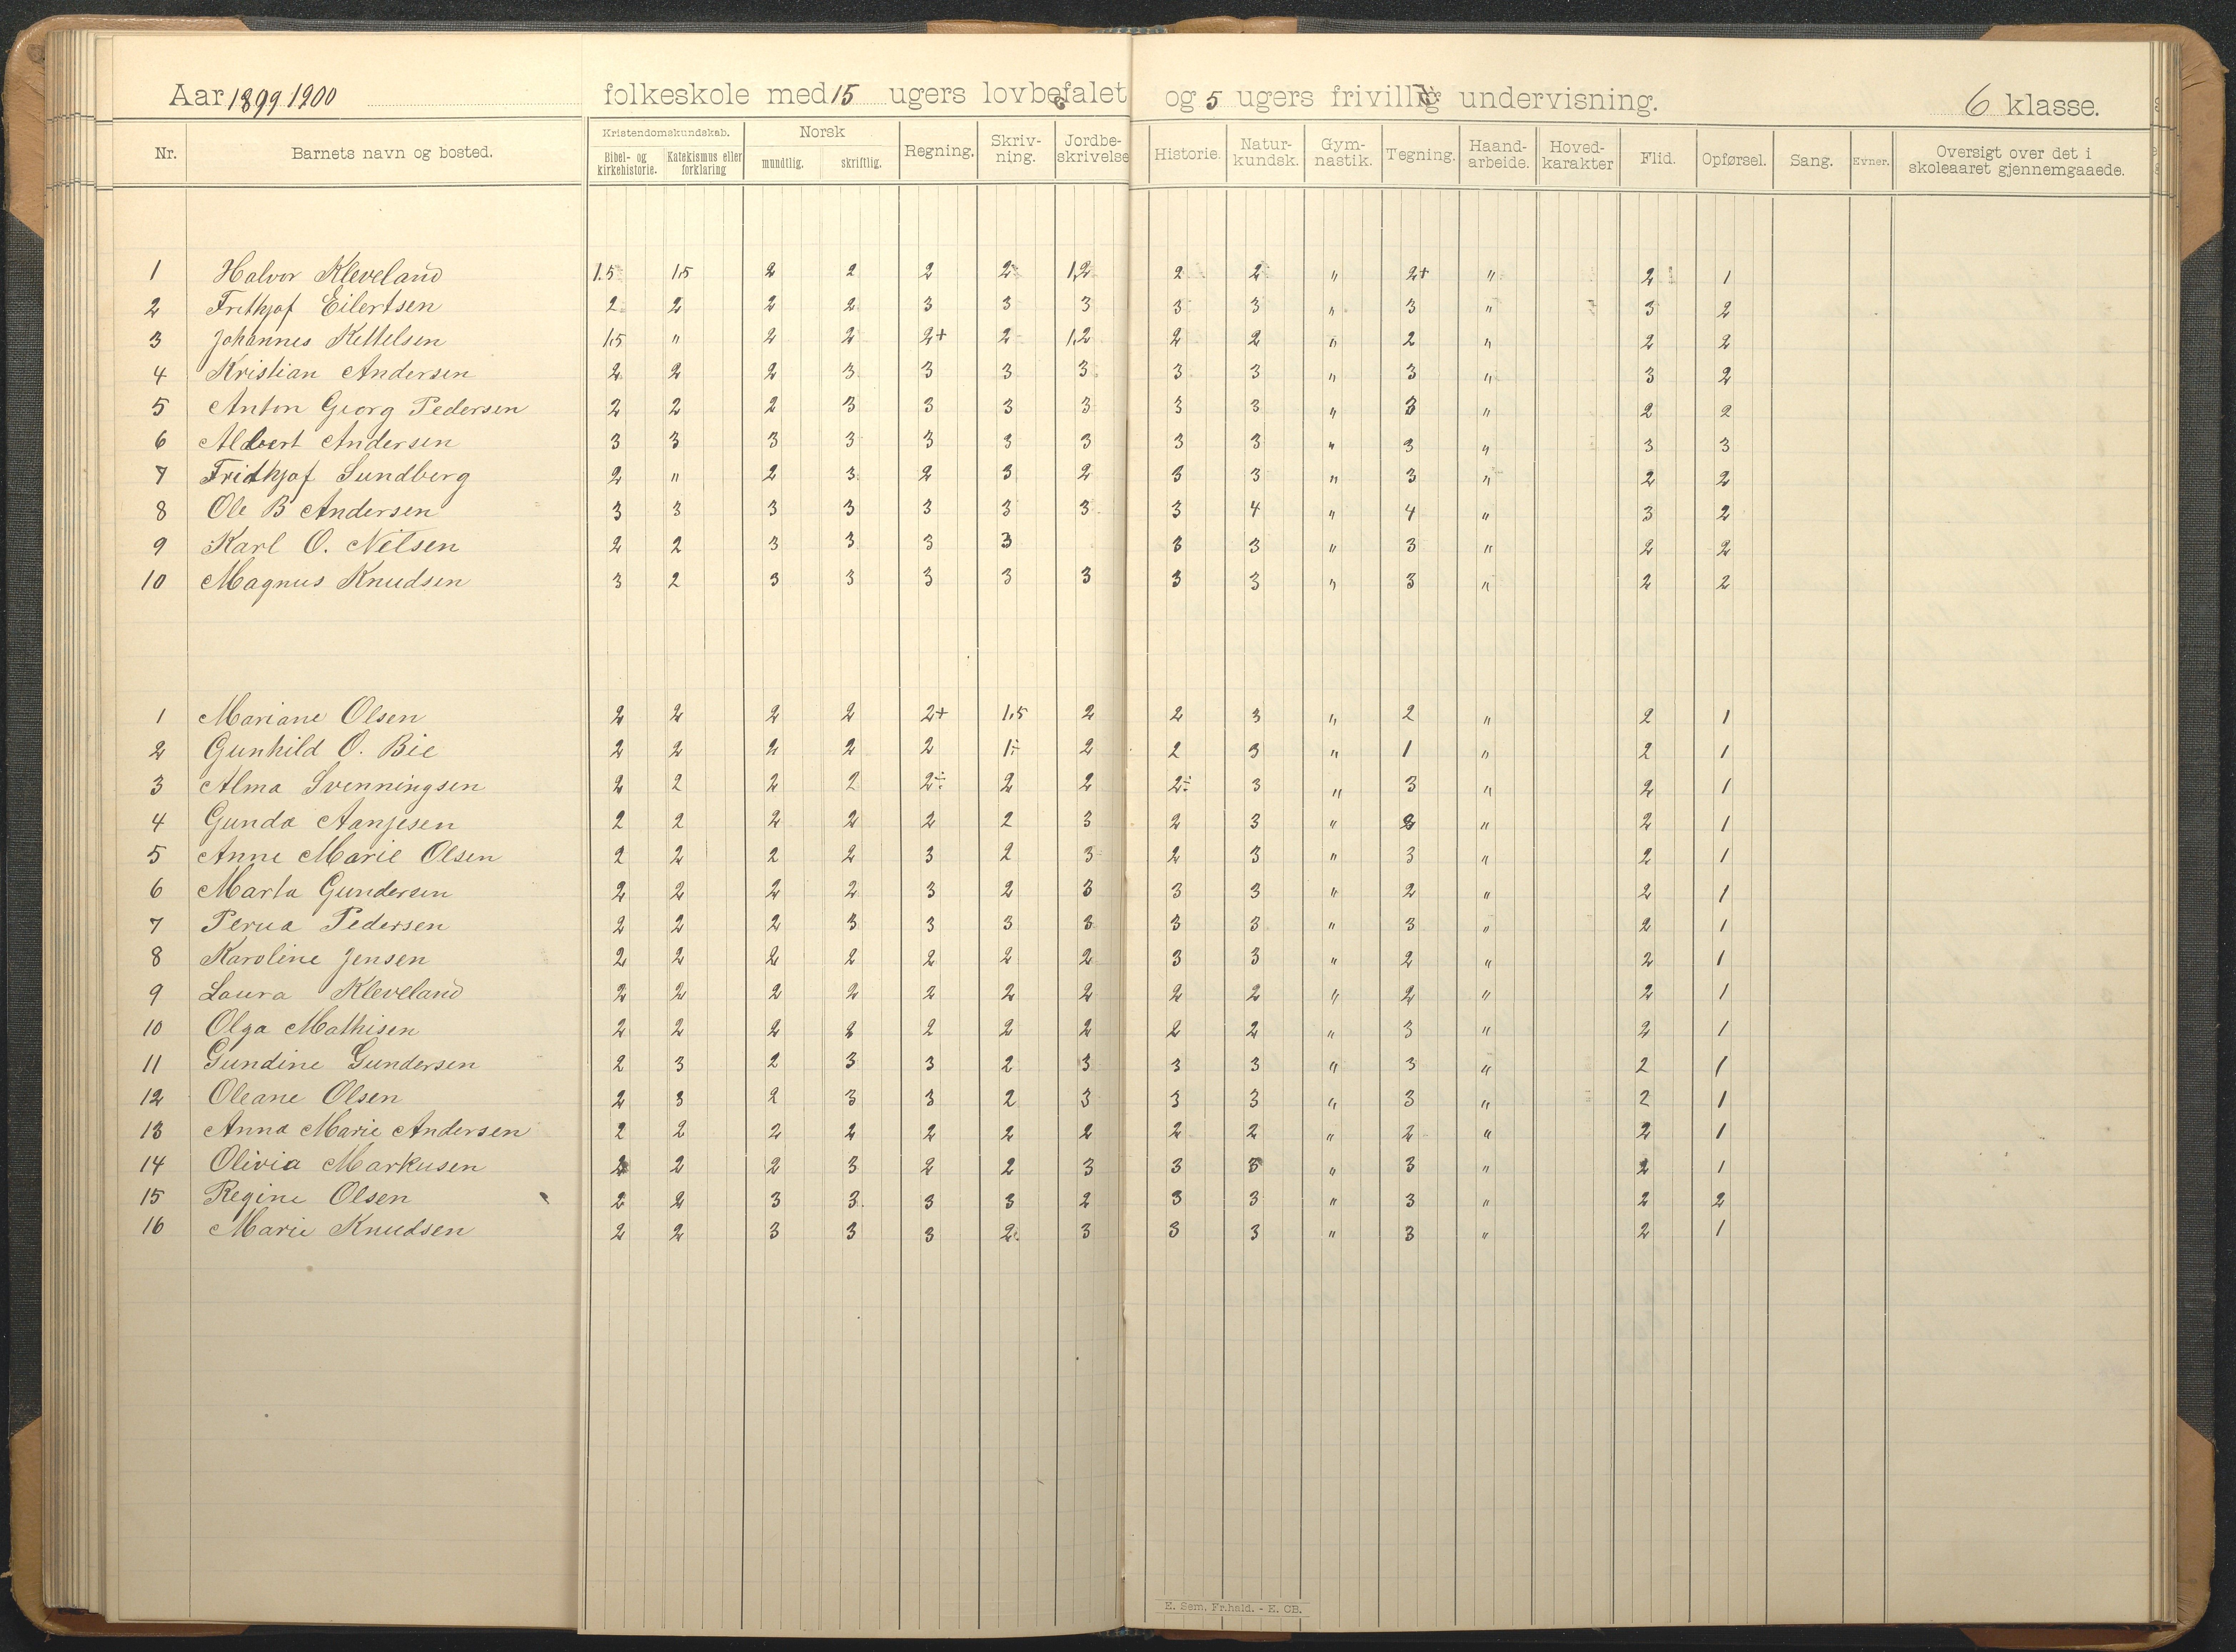 Aar 1899 1900 folkeskole med 15 ugers lovbefalet og 5 ugers frivillig undervisning. 6 klasse.
Nr. Barnets navn og bosted. Kristendomskundskab. Bibel- og kirkehistorie. Katekismus eller forklaring Norsk mundtlig. skriftlig. Regning. Skriv-ning. Jordbe-skrivelse Historie. Natur-kundsk. Gym-nastik. Tegning. Haand-arbeide. Hoved-karakter Flid. Opførsel. Sang. Evner. Oversigt over det i skoleaaret gjennemgaaede.
1 Halvor Kleveland 1.5 1,5 2 2 2 2 1,2 2 2 " 2+ " 2 1
2 Frithjof Eilertsen 2 2 2 2 3 3 3 3 3 " 3 " 3 2
3 Johannes Kettelsen 1,5 " 2 2 2+ 2 1,2 2 2 " 2 " 2 2
4 Kristian Andersen 2 2 2 3 3 3 3 3 3 " 3 " 3 2
5 Anton Georg Pedersen 2 2 2 3 3 3 3 3 3 " 3 " 2 2
6 Albert Andersen 3 3 3 3 3 3 3 3 3 " 3 " 3 3
7 Fridthjof Sundberg 2 " 2 3 2 3 2 3 3 " 3 " 2 2
8 Ole B Andersen 3 3 3 3 3 3 3 3 4 " 4 " 3 2
9 Karl O. Nilsen 2 2 3 3 3 3 3 3 " 3 " 2 2
10 Magnus Knudsen 3 2 3 3 3 3 3 3 3 " 3 " 2 2
1 Mariane Olsen 2 2 2 2 2+ 1,5 2 2 3 " 2 " 2 1
2 Gunhild O. Bie 2 2 2 2 2 1÷ 2 2 3 " 1 " 2 1
3 Alma Svenningsen 2 2 2 2 2÷ 2 2 2÷ 3 " 3 " 2 1
4 Gunda Aanjesen 2 2 2 2 2 2 3 2 3 " " 2 1
5 Anne Marie Olsen 2 2 2 2 3 2 3 2 3 " 3 " 2 1
6 Marta Gundersen 2 2 2 2 3 2 3 3 3 " 2 " 2 1
7 Perua Pedersen 2 2 2 3 3 3 3 3 3 " 3 " 2 1
8 Karoline Jensen 2 2 2 2 2 2 2 3 3 " 2 " 2 1
9 Laura Kleveland 2 2 2 2 2 2 2 2 2 " 2 " 2 1
10 Olga Mathisen 2 2 2 2 2 2 2 2 " 3 " 2 1
11 Gundine Gundersen 2 3 2 3 3 2 3 3 3 " 3 " 2 1
12 Oleane Olsen 2 3 2 3 3 2 3 3 3 " 3 " 2 1
13 Anna Marie Andersen 2 2 2 2 2 2 2 2 2 " 2 " 2 1
14 Olivia Markusen 2 2 2 3 2 2 3 3 3 " 3 " 2 1
15 Regine Olsen 2 2 3 3 3 3 2 3 3 " 3 " 2 2
16 Marie Knudsen 2 2 3 3 3 2 3 3 3 " 3 " 2 1
E. Sem, Fr.hald. - E. CB.